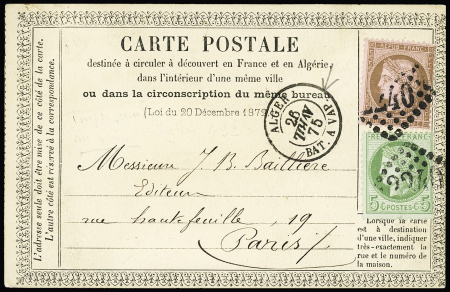 CARTE POSTALE
destinée à circuler à découvert en France et en Algérie,
dans l'intérieur d'une même ville
ou dans la circonscription du même bureau.
(Loi du 20 Décembre 1872)
L'adresse seule doit être mise de ce côté de la carte.
L'autre côté est réservé à la correspondance.
ALGER
25
JANV
75
BAT. A VAP.
REPUB. FRANC.
5 C POSTES 5 C
Messieurs J. B. Baillière
Editeur
rue hautefeuille, 19
Paris
Lorsque la carte
est à destination
d'une ville, indiquer
très-exactement la
rue et le numéro de
la maison.